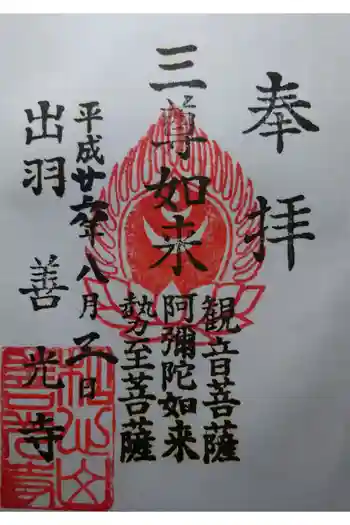 奉拝
三尊如来
観音菩薩
阿彌陀如来
勢至菩薩
平成廿六年八月五日
出羽善光寺